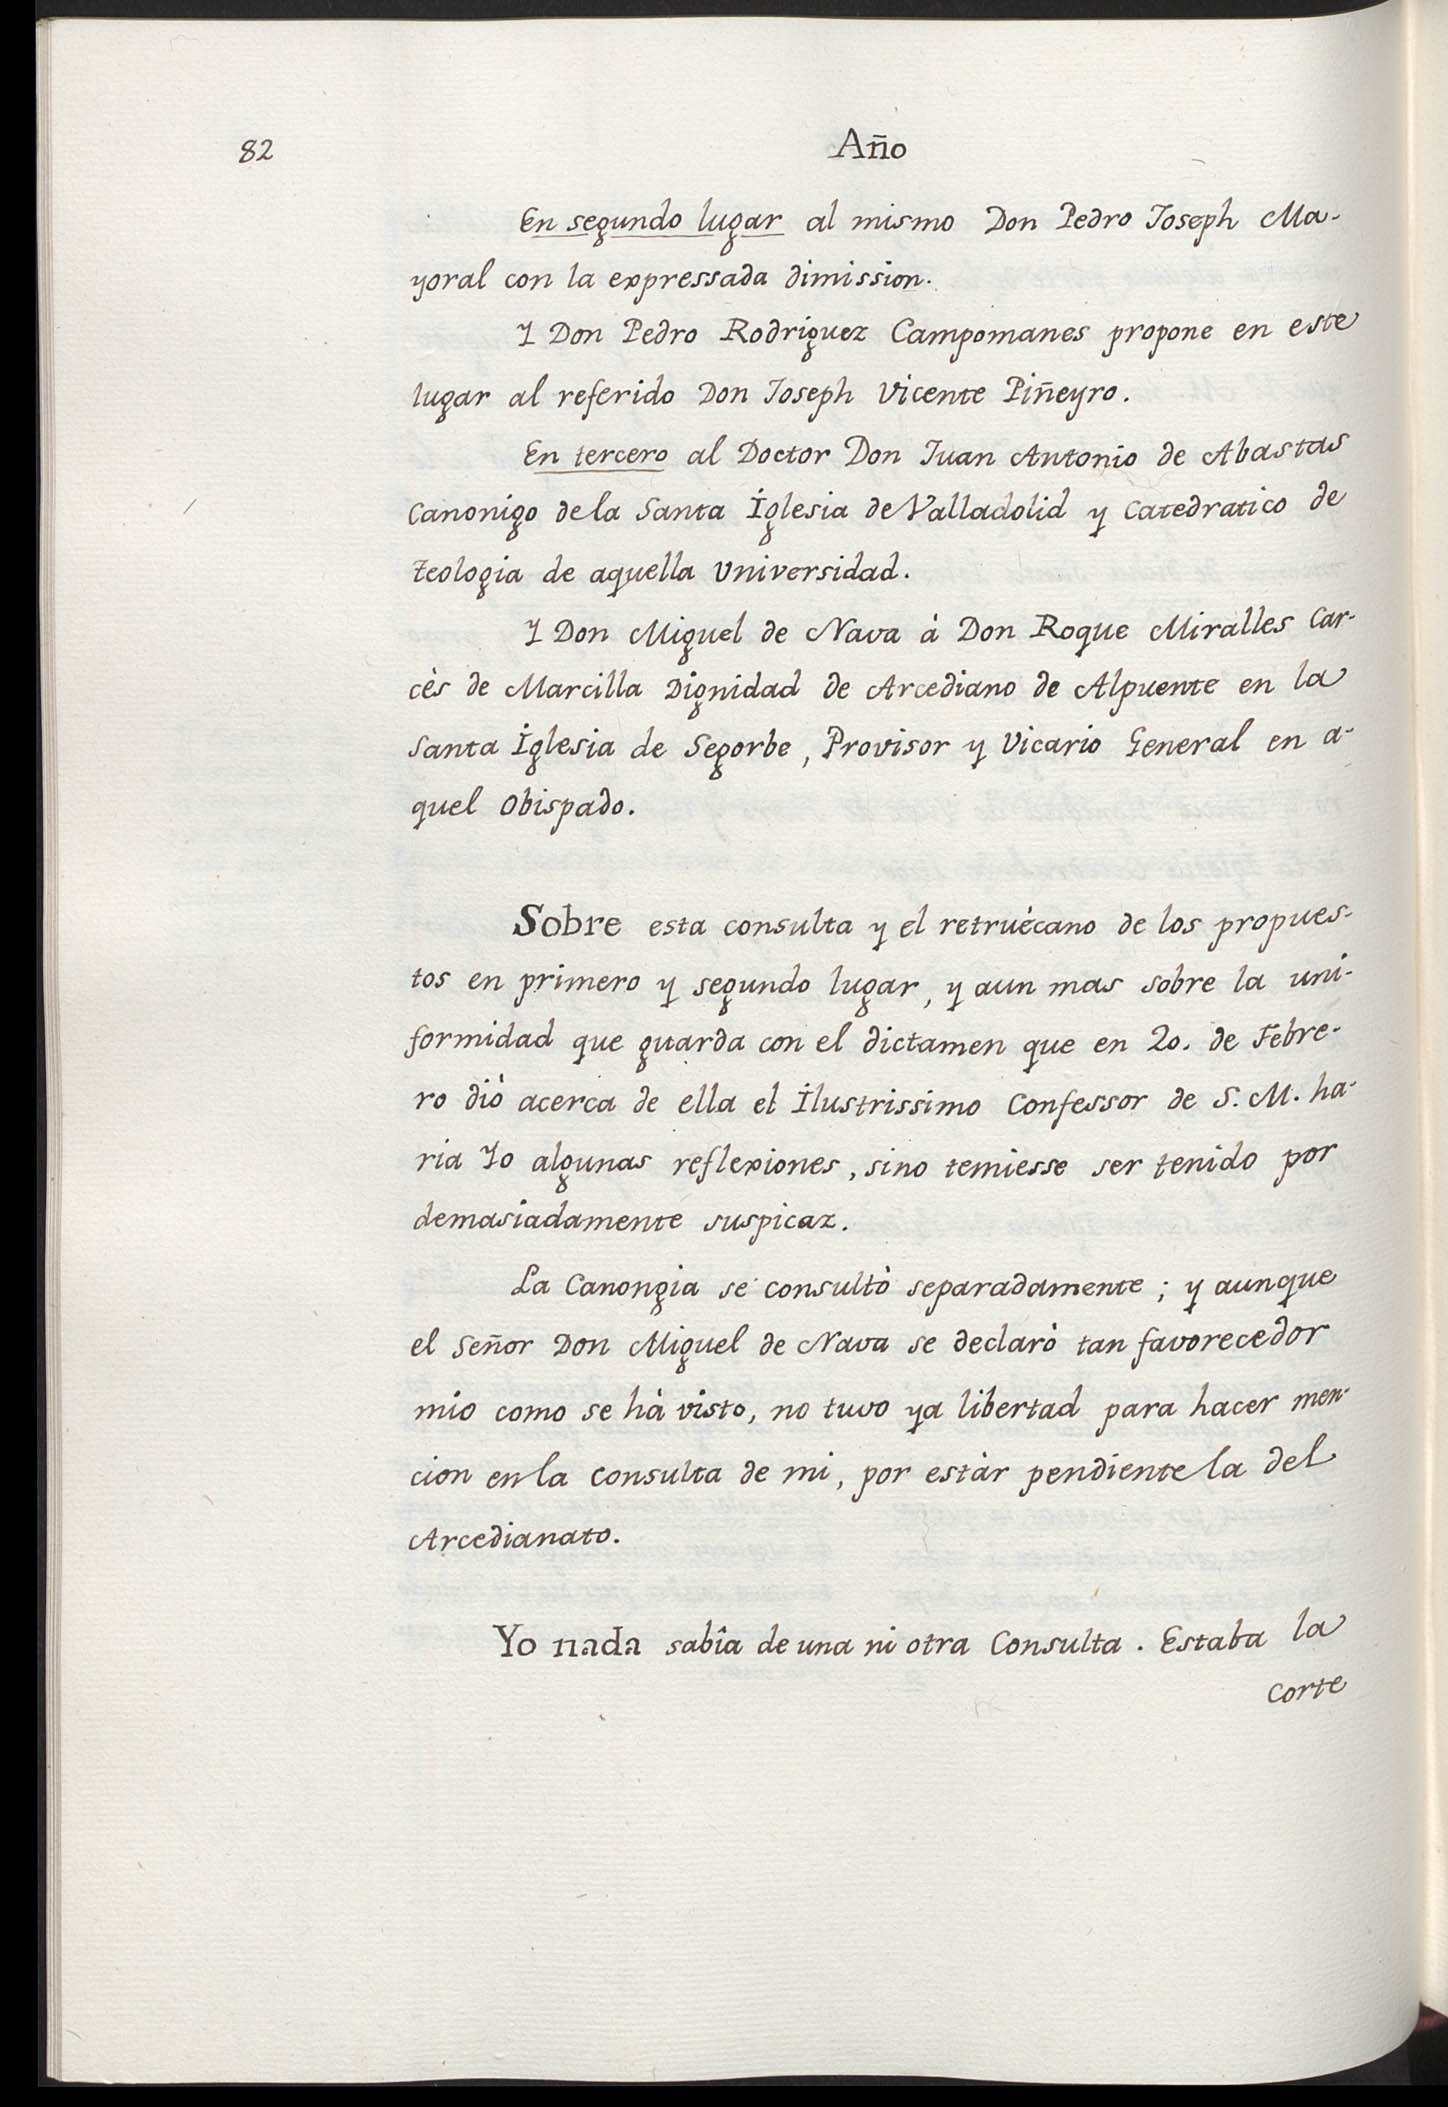 82
Año
En segundo lugar al mismo Don Pedro Joseph Ma-
yoral con la expressada dimission.
Y Don Pedro Rodriguez Campomanes propone en este
lugar al referido Don Joseph Vicente Piñeyro.
En tercero al Doctor Don Juan Antonio de Abastas
Canonigo de la Santa Iglesia de Valladolid y Catedratico de
teologia de aquella Universidad.
Y Don Miguel de Nava à Don Roque Miralles Car-
cès de Marcilla Dignidad de Arcediano de Alpuente en la
Santa Iglesia de Segorbe, Provisor y Vicario General en a-
quel Obispado.
Sobre esta consulta y el retruécano de los propues-
tos en primero y segundo lugar, y aun mas sobre la uni-
formidad que guarda con el dictamen que en 20. de Febre-
ro diò acerca de ella el Ilustrissimo Confessor de S. M. ha-
ria Yo algunas reflexiones, sino temiesse ser tenido por
demasiadamente suspicaz.
La Canongia se consultò separadamente; y aunque
el Señor Don Miguel de Nava se declarò tan favorecedor
mio como se hà visto, no tuvo ya libertad para hacer men-
cion en la Consulta de mi, por estàr pendiente la del
Arcedianato.
Yo nada sabîa de una ni otra Consulta. Estaba la
Corte